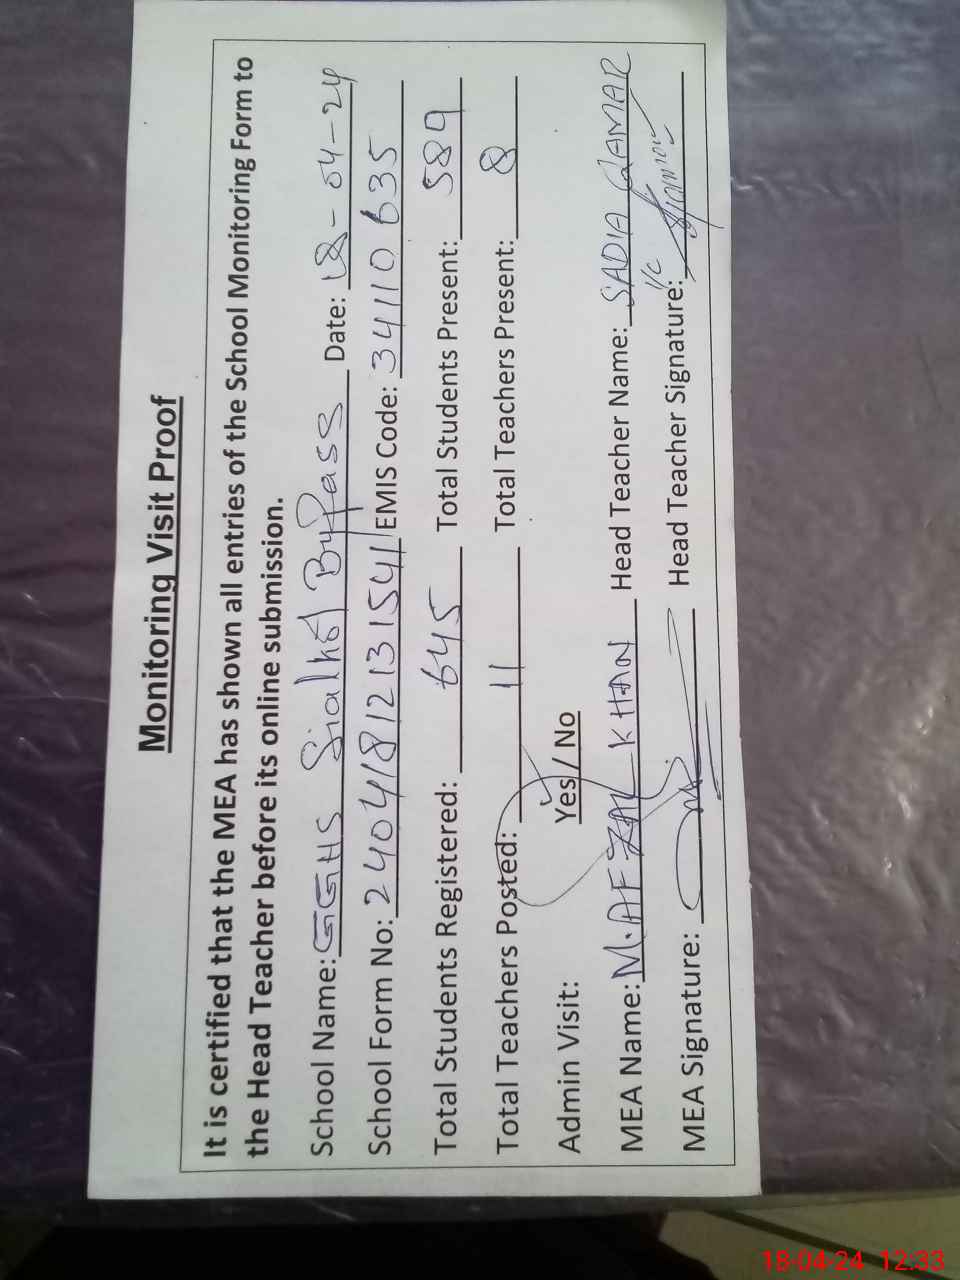 Monitoring Visit Proof
It is certified that the MEA has shown all entries of the School Monitoring Form to
the Head Teacher before its online submission.
School Name: GGHS Sialkot ByPass Date: 18-04-24
School Form No: 24041812131541 EMIS Code: 34110635
Total Students Registered: 645 Total Students Present: 589
Total Teachers Posted: 11 Total Teachers Present: 8
Admin Visit: Yes / No
MEA Name: M.AFZAL KHAN Head Teacher Name: SADIA QAMAR
MEA Signature: Head Teacher Signature: I/C
18-04-24 12:33